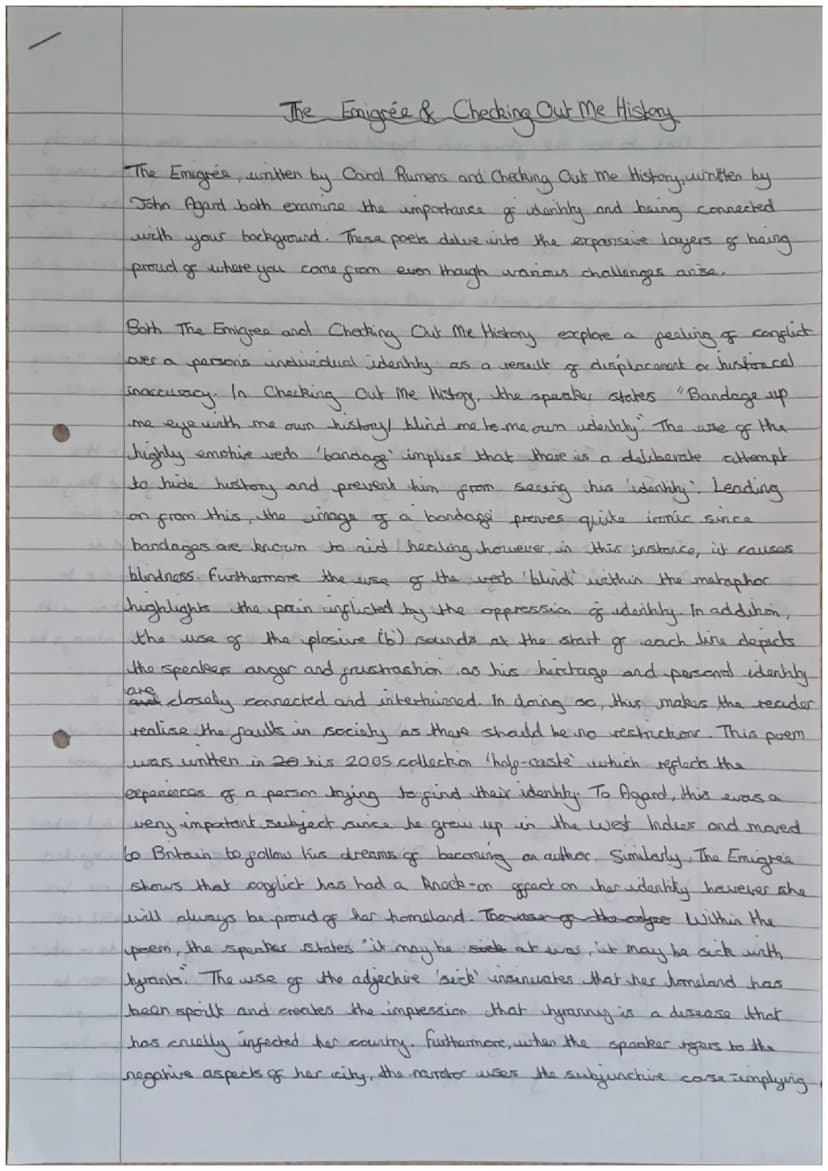 The Emigrée & Checking Out Me History
The Emigrée, written by Carol Rumens and Checking Out Me History, written by
John Agard both examine the importance of identity and being connected
with your background. These poets delve into the expansive layers of being
proud of where you come from even though various challenges arise.
Both The Emigree and Checking Out Me History explore a feeling of conflict
over a person's individual identity as a result of displacement or historical
inaccuracy. In Checking Out Me History, the speaker states "Bandage up
me eye with me own history/ blind me to me own identity". The use of the
highly emotive verb 'bandage' implies that there is a deliberate attempt
to hide history and prevent him from seeing his 'identity'. Leading
on from this, the image of a bandage proves quite ironic since
bandages are known to aid healing however, in this instance, it causes
blindness. Furthermore the use of the verb 'blind' within the metaphor
highlights the pain inflicted by the oppression of identity. In addition,
the use of the plosive (b) sounds at the start of each line depicts
the speakers anger and frustration as his heritage and personal identity
are closely connected and intertwined. In doing so, this makes the reader
realise the faults in society as there should be no restrictions. This poem
was written in his 2005 collection 'half-caste' which reflects the
experiences of a person trying to find their identity. To Agard, this was a
very important subject since he grew up in the West Indies and moved
to Britain to follow his dreams of becoming an author. Similarly, The Emigrée
shows that conflict has had a knock-on effect on her identity however she
will always be proud of her homeland. Within the
poem, the speaker states "it may be at war, it may be sick with
tyrants". The use of the adjective 'sick' insinuates that her homeland has
been spoilt and creates the impression that tyranny is a disease that
has cruelly infected her country. Furthermore, when the speaker refers to the
negative aspects of her city, the narrator uses the subjunctive case implying